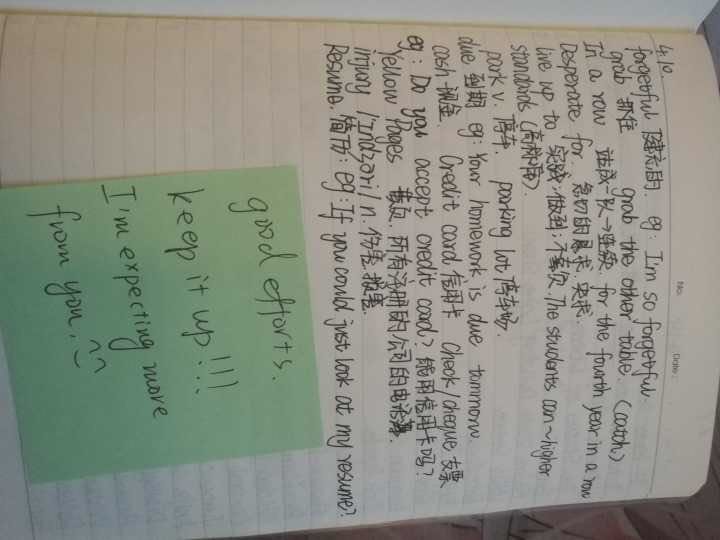 No.
Date:
4.10
forgetful 健忘的. eg: I'm so forgetful.
grab 抓住 grab the other table. (catch)
In a row 连成一队→连续. for the fourth year in a row
Desperate for 急切的寻求.
live up to 实践;做到;不辜负. The students can~higher
standards (高标准).
park v. 停车. parking lot 停车场.
due 到期 eg: Your homework is due tommorw.
cash 现金. Credit card 信用卡 Check/cheque 支票
eg: Do you accept credit card? 能用信用卡吗?
Yellow Pages 黄页. 所有注册的公司的电话簿.
injury /'Indʒəri/ n. 伤害
Resume. 简历: eg: If you could just look at my resume?
good efforts.
keep it up!!!
I'm expecting more
from you.